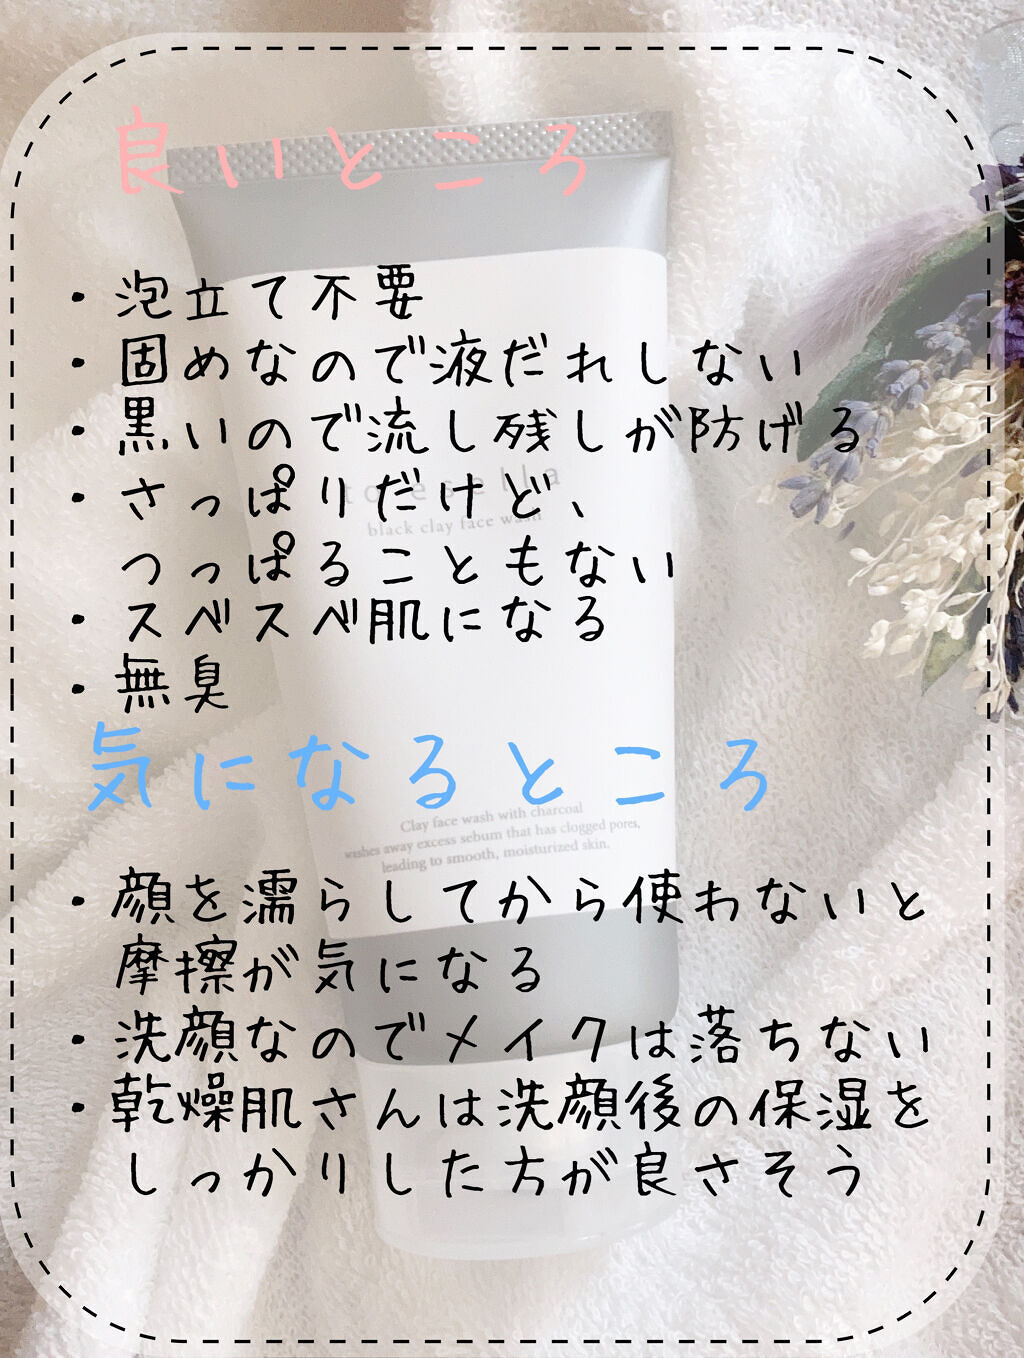 良いところ
・泡立て不要
・固めなので液だれしない
・黒いので流し残しが防げる
・さっぱりだけど、
つっぱることもない
・スベスベ肌になる
・無臭
black clay face wash
気になるところ
Clay face wash with charcoal
washes away excess sebum that has clogged pores,
leading to smooth, moisturized skin.
・顔を濡らしてから使わないと
摩擦が気になる
・洗顔なのでメイクは落ちない
・乾燥肌さんは洗顔後の保湿を
しっかりした方が良さそう